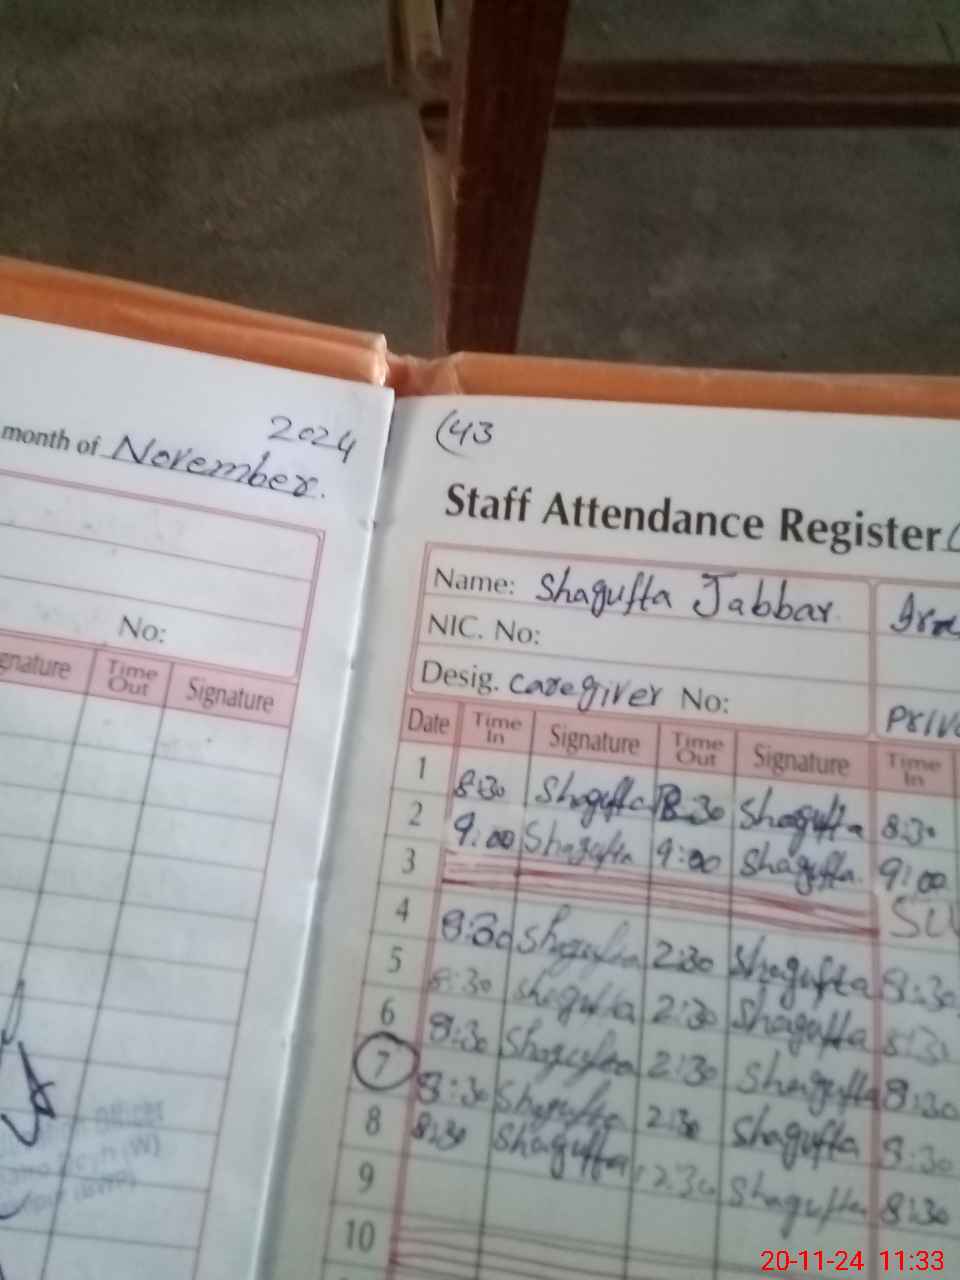 2024
month of November.
No:
gnature Time Out Signature
(43
Staff Attendance Register
Name: Shagufta Jabbar
NIC. No:
Desig. caregiver No:
Date Time In Signature Time Out Signature Time In
1 8:30 Shagufta 8:30 Shagufta 8:30
2 9:00 Shagufta 9:00 Shagufta 9:00
3
4 8:30 Shagufta 2:30 Shagufta 8:30
5 8:30 Shagufta 2:30 Shagufta 8:30
6 8:30 Shagufta 2:30 Shagufta 8:30
7 8:30 Shagufta 2:30 Shagufta 8:30
8 8:30 Shagufta 2:30 Shagufta 8:30
9
10
20-11-24 11:33